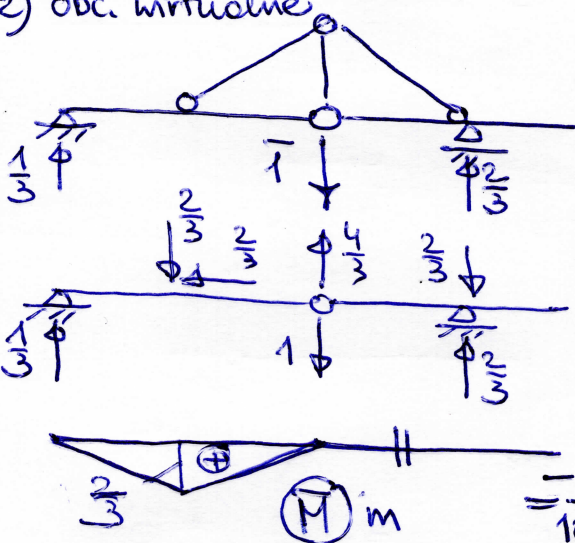 2) obc. wirtualne
1/3
1̄
2/3
2/3
2/3
4/3
2/3
1/3
1
2/3
2/3
+
M̄ m